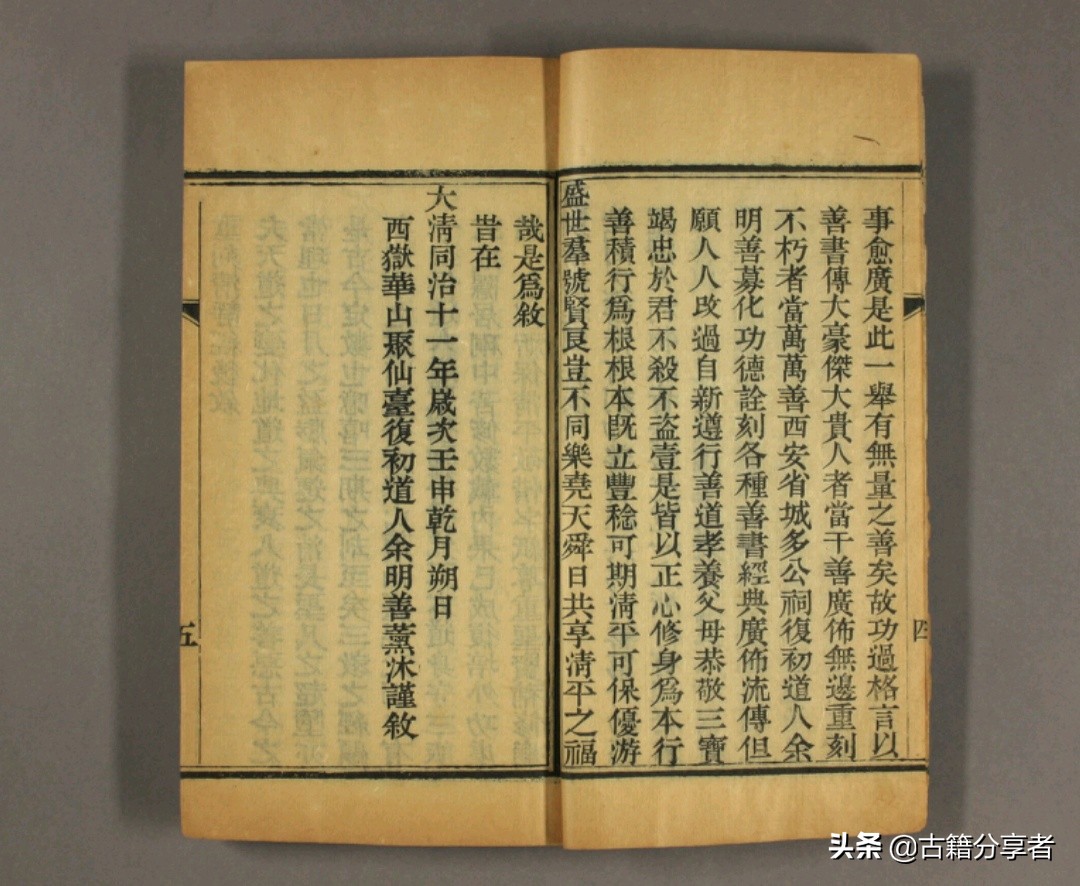 事愈廣是此一舉有無量之善矣故功過格言以
善書傳大豪傑大貴人者當千善廣佈無邊重刻
不朽者當萬萬善西安省城多公祠復初道人余
明善募化功德詮刻各種善書經典廣佈流傳但
願人人改過自新遵行善道孝養父母恭敬三寶
竭忠於君不殺不盗壹是皆以正心修身爲本行
善積行爲根根本既立豐稔可期淸平可保優游
盛世羣號賢良豈不同樂堯天舜日共享淸平之福
四
哉是爲敘
旹在
大淸同治十一年歲次壬申乾月朔日
西嶽華山聚仙臺復初道人余明善薰沐謹敘
五
头条 @古籍分享者